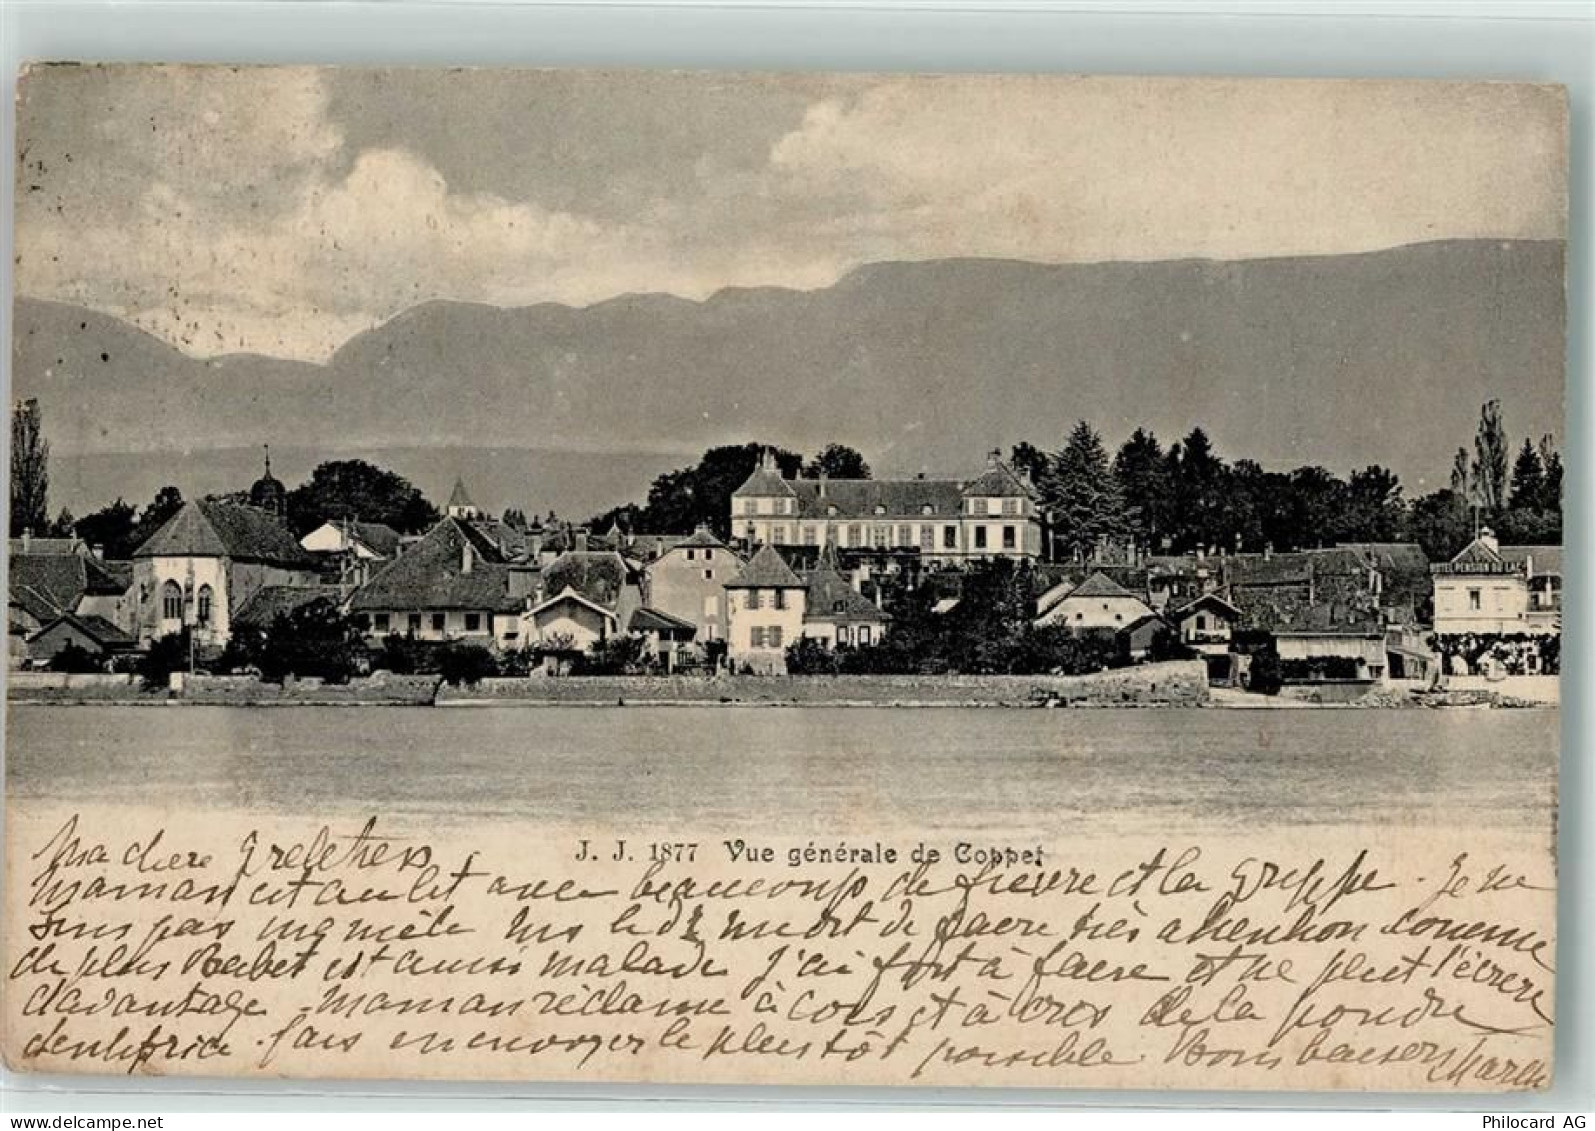 HOTEL PENSION DU LAC
J. J. 1877 Vue générale de Coppet
Ma chère Gretchen
Maman est au lit avec beaucoup de fièvre et la grippe. Je ne
suis pas inquiète mais le dr me dit de faire très attention comme
de plus Bebet est aussi malade j'ai fort à faire et ne peut t'écrire
d'avantage. Maman réclame à cors et à cris de la poudre
dentifrice. fais en envoyer le plus tôt possible. Bons baisers
Philocard AG
www.delcampe.net